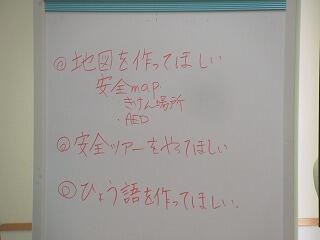 ◎地図を作ってほしい
安全map.
きけん場所
・AED
◎安全ツアーをやってほしい
◎ひょう語を作ってほしい.